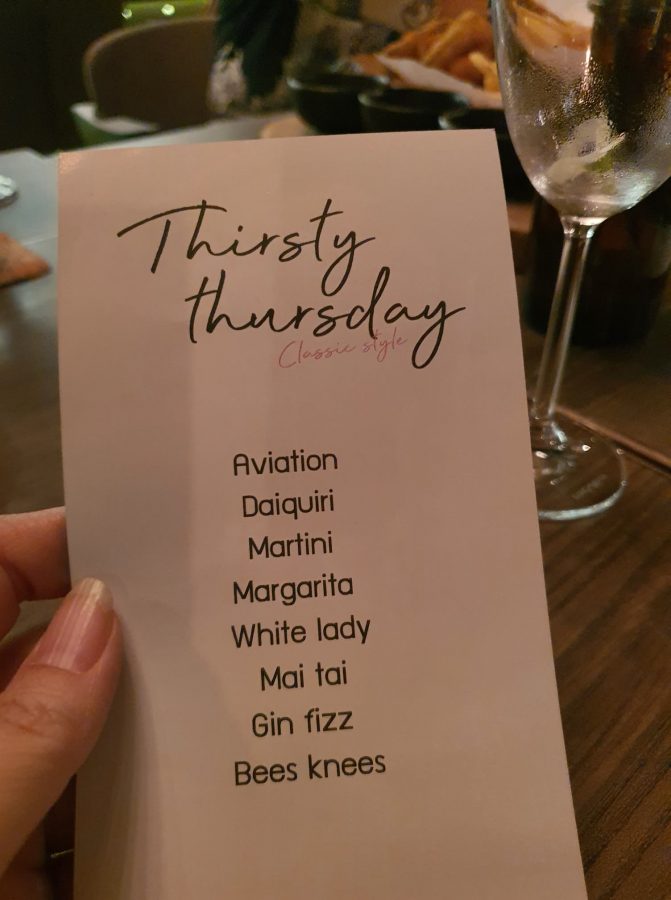 Thirsty
thursday
Classic style
Aviation
Daiquiri
Martini
Margarita
White lady
Mai tai
Gin fizz
Bees knees